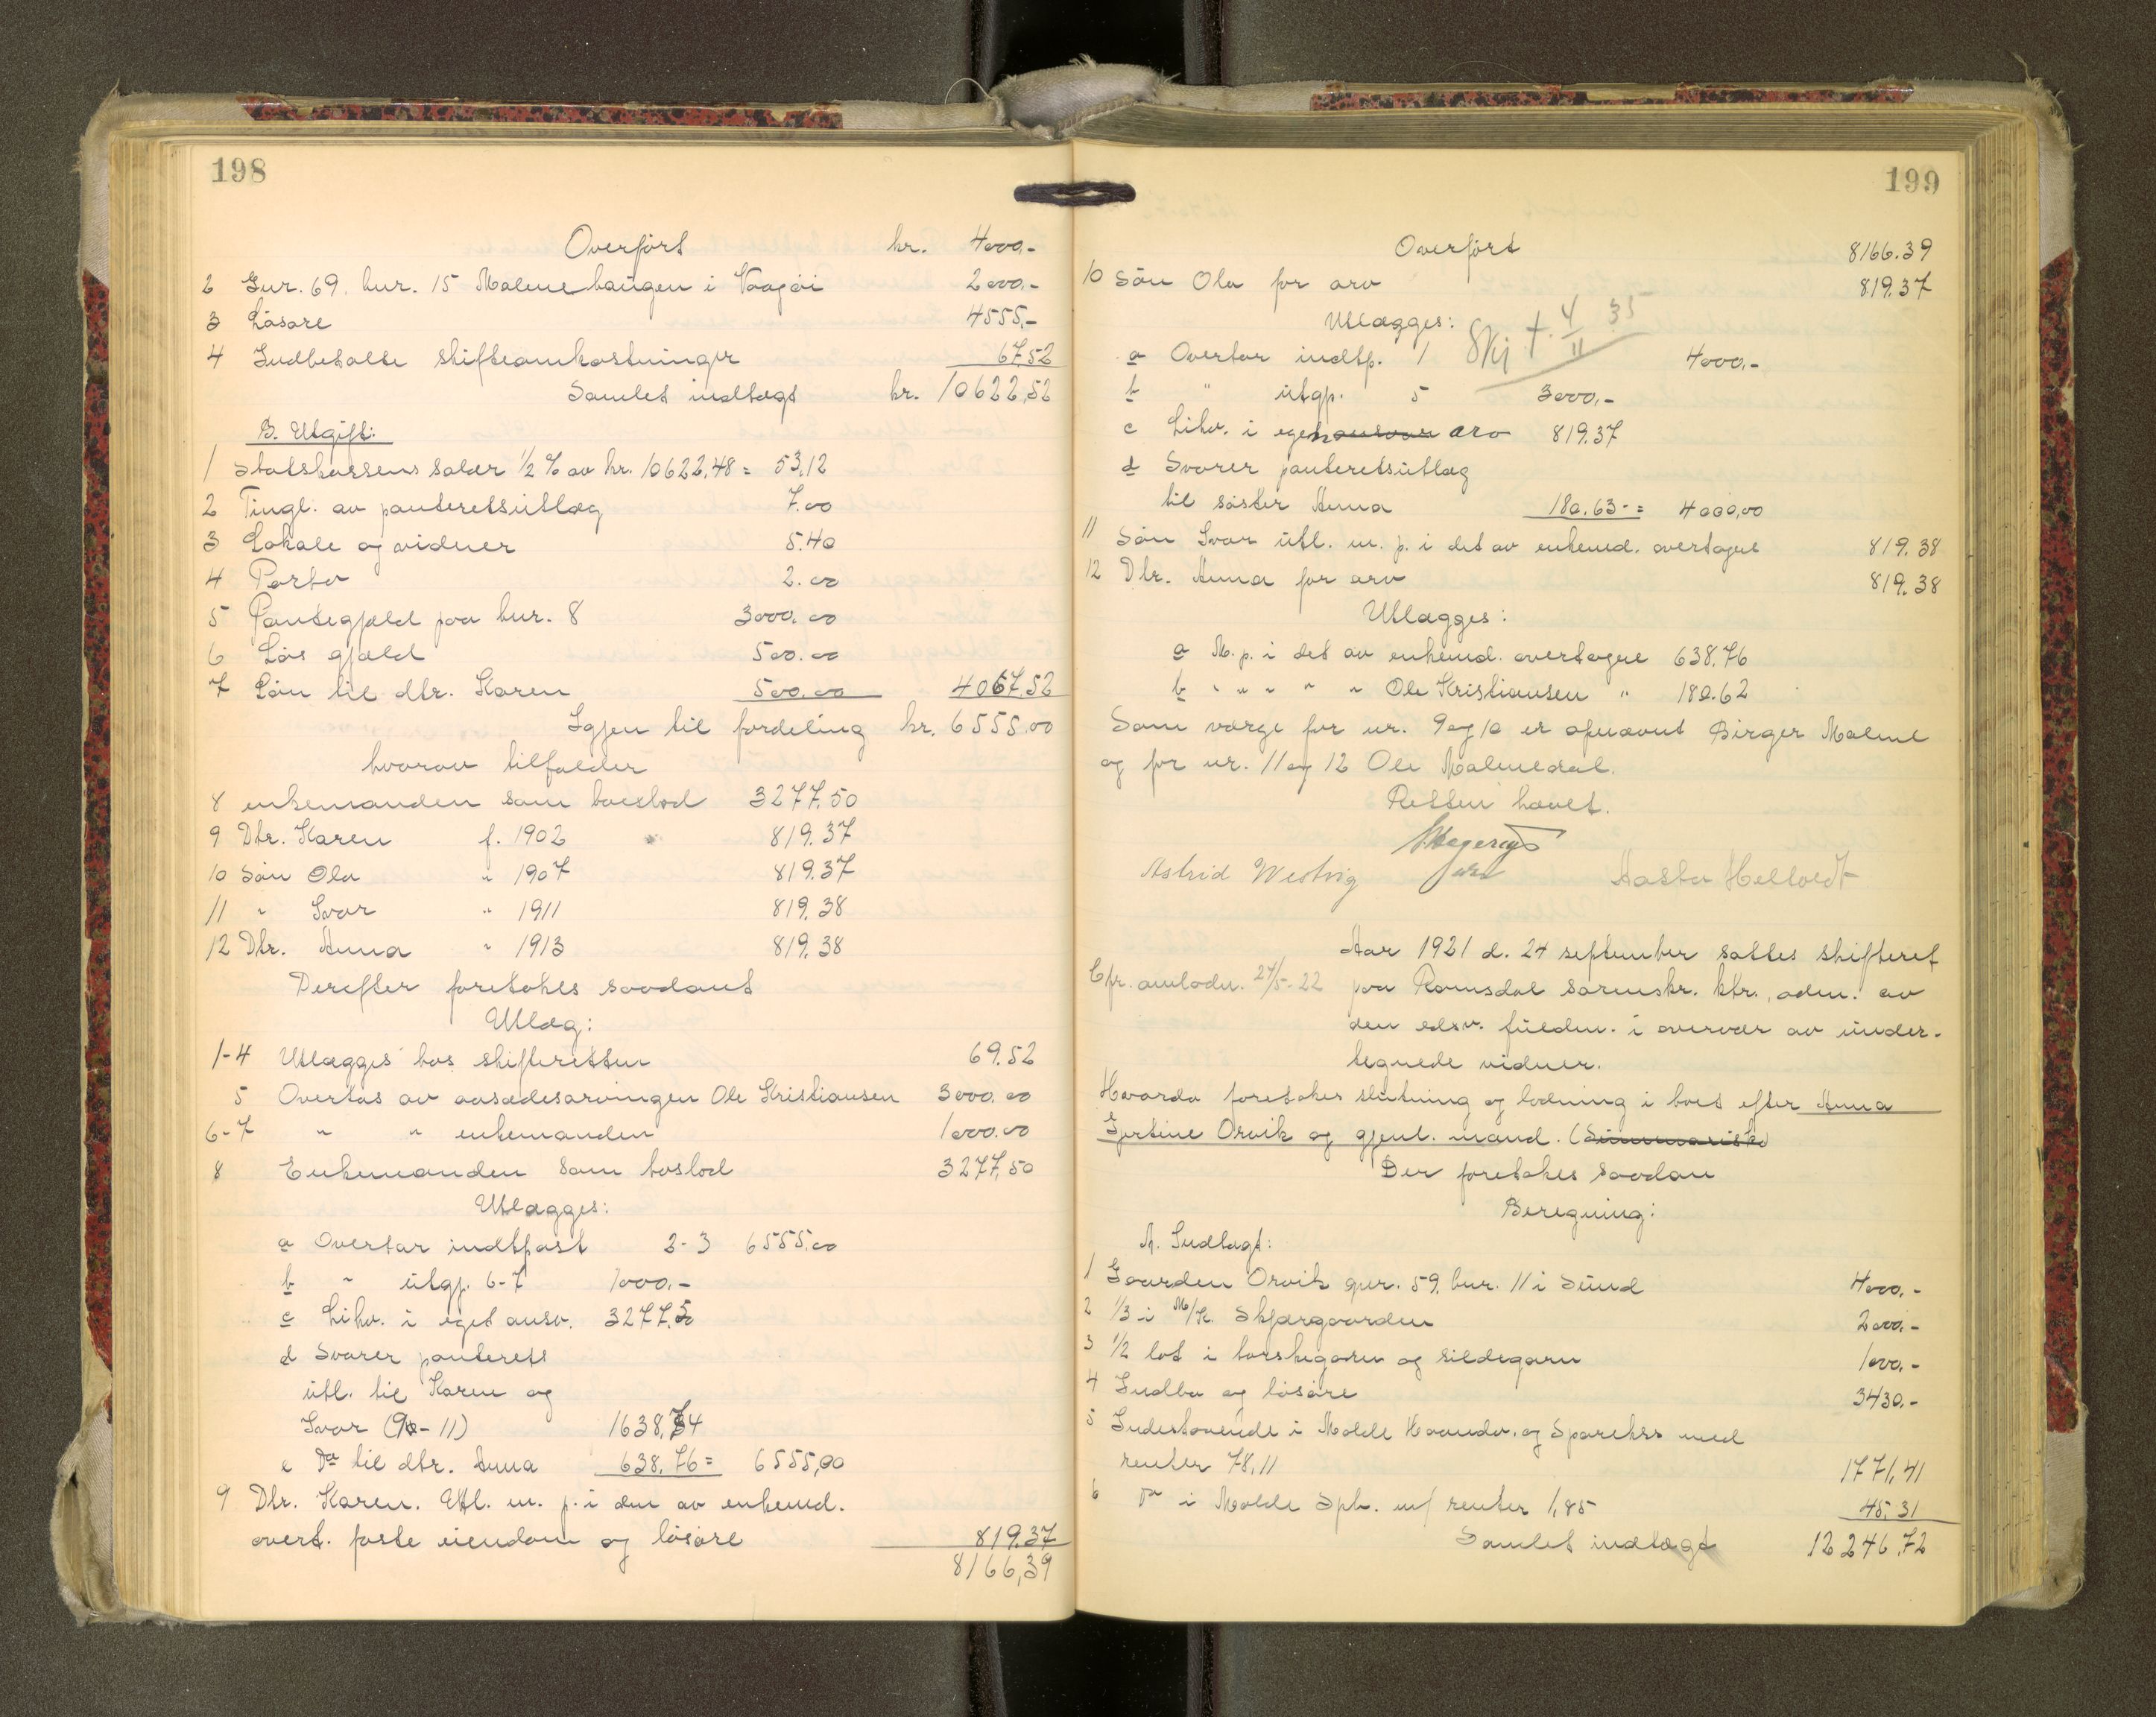 198
Overført kr. 4000.-
2 Gnr. 69. bnr. 15 Malmehaugen i Vaagøi 2000.-
3 Løsøre 4555.-
4 Indbetalte skifteomkostninger 67,52
Samlet indtægt kr. 10622,52
B. Utgift:
1 Statskassens salær ½ % av kr. 10622,48 = 53,12
2 Tingl. av panteretsutlæg 7.00
3 Lokale og vidner 5.40
4 Porto 2.00
5 Pantegjæld paa bnr. 8 3000.00
6 Løs gjæld 500.00
7 Løn til dtr. Karen 500.00 4067.52
Igjen til fordeling kr. 6555.00
hvorav tilfalder
8 enkemanden som boeslod 3277.50
9 Dtr. Karen f. 1902 819.37
10 Søn Ola " 1907 819.37
11 " Ivar " 1911 819.38
12 Dtr. Anna " 1913 819.38
Derefter foretokes saadant
Utlæg:
1-4 Utlægges hos skifteretten 69.52
5 Overtas av aasædesarvingen Ole Kristiansen 3000.00
6-7 " " enkemanden 1000.00
8 Enkemanden som boslod 3277,50
Utlægges:
a Overtar indtpost 2-3 6555.00
b " utgp. 6-7 1000.-
c Likv. i eget ansv. 3277.50
d Svarer panterets
utl. til Karen og
Ivar (9-11) 1638,74
e Do til dtr. Anna 638,76 = 6555,00
9 Dtr. Karen. Utl. m. p. i den av enkemd.
overt. faste eiendom og løsøre 819.37
8166,39
199
Overført 8166.39
10 Søn Ola for arv 819.37
Utlægges: Skj t. 4/11 35
a Overtar indtp. 1 4000.-
b " utgp. 5 3000.-
c Likv. i egen ansvar arv 819.37
d Svarer panteretsutlæg
til søster Anna 180.63 = 4000,00
11 Søn Ivar utl. m. p. i det av enkemd. overtagne 819.38
12 Dtr. Anna for arv 819.38
Utlægges:
a M. p. i det av enkemd. overtagne 638.76
b " " " " " Ole Kristiansen " 180.62
Som værge for nr. 9 og 10 er opnævnt Birger Malme
og for nr. 11 og 12 Ole Malmedal.
Retten hævet.
Astrid Westvig Aasta Helleedt
Aar 1921 d. 24 september sattes skifteret
Cfr. omlodn. 24/5-22 paa Romsdal sorenskr. ktr., adm. av
den edsv. fuldm. i overvær av under-
tegnede vidner.
Hvorda foretokes slutning og lodning i boet efter Anna
Gjertine Orvik og gjenl. mand. (Summarisk)
Der foretokes saadan
Beregning:
A. Indtægt:
1 Gaarden Orvik gnr. 59, bnr. 11 i Sund 4000.-
2 1/3 i M/K. Skjærgaarden 2000.-
3 1/2 lot i torskegarn og sildegarn 1000.-
4 Indbo og løsøre 3430.-
5 Indestaaende i Molde Haandv. og Sparekss med
renter 78,11 1771,41
6 Do i Molde Spb. m/ renter 1,85 45.31
Samlet indtægt 12246,72